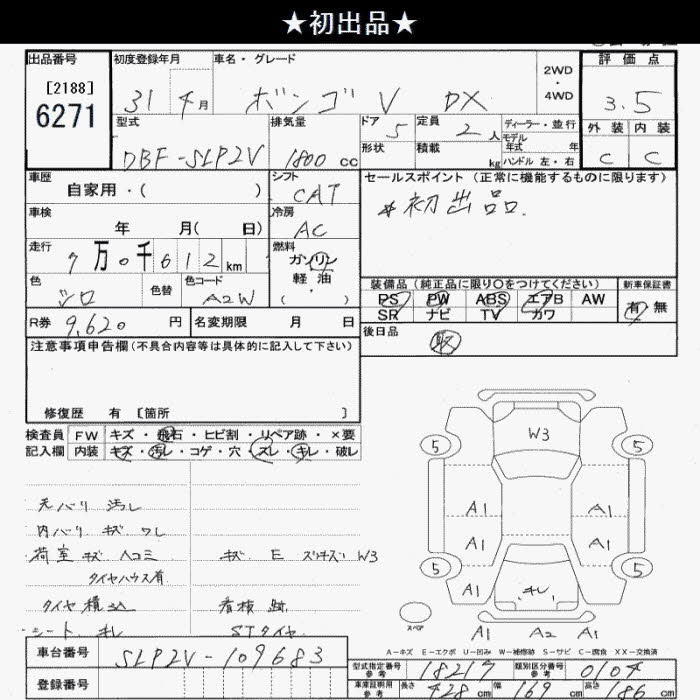 ★初出品★
出品番号 初度登録年月 車名・グレード 2WD・4WD 評価点
[2188]
6271
31 年 4月 ボンゴV DX 3.5
型式 排気量 ドア 5 定員 2人 ディーラー・並行 外装 内装
形状 積載 kg モデル年式 年 ハンドル 左・右
DBF-SLP2V 1800cc C C
車歴 シフト セールスポイント(正常に機能するものに限ります)
自家用・( ) CAT
*初出品.
車検 冷房
年 月( 日) AC
走行 燃料
7万0千612km ガソリン
軽油
( ・ )
色 色替 色コード 装備品(純正品に限り〇をつけてください) 新車保証書
シロ A2W PS PW ABS エアB AW 有 無
SR ナビ TV カワ
R券 9,620円 名変期限 月 日 後日品
取
注意事項申告欄(不具合内容等は具体的に記入して下さい)
修復歴 有 [箇所 ]
検査員 FW キズ・飛石・ヒビ割・リペア跡・×要
記入欄 内装 キズ・汚レ・コゲ・穴・スレ・キレ・破レ
W3
5 5
天バリ 汚レ
内バリ キズ ワレ
荷室 キズ ヘコミ キズ E W3
タイヤハウス有
タイヤ積込 看板 跡
シート キレ STタイヤ
A1 A1
A1 A1
5 5
A1 キレ A1
スペア A1 A2 A1
A-キズ E-エクボ U-凹み W-補修跡 S-サビ C-腐食 XX-交換済
車台番号 SLP2V-109683
登録番号
型式指定番号 参考 18217 類別区分番号 参考 0104
車庫証明用 参考 長さ 428cm 幅 169cm 高さ 186cm